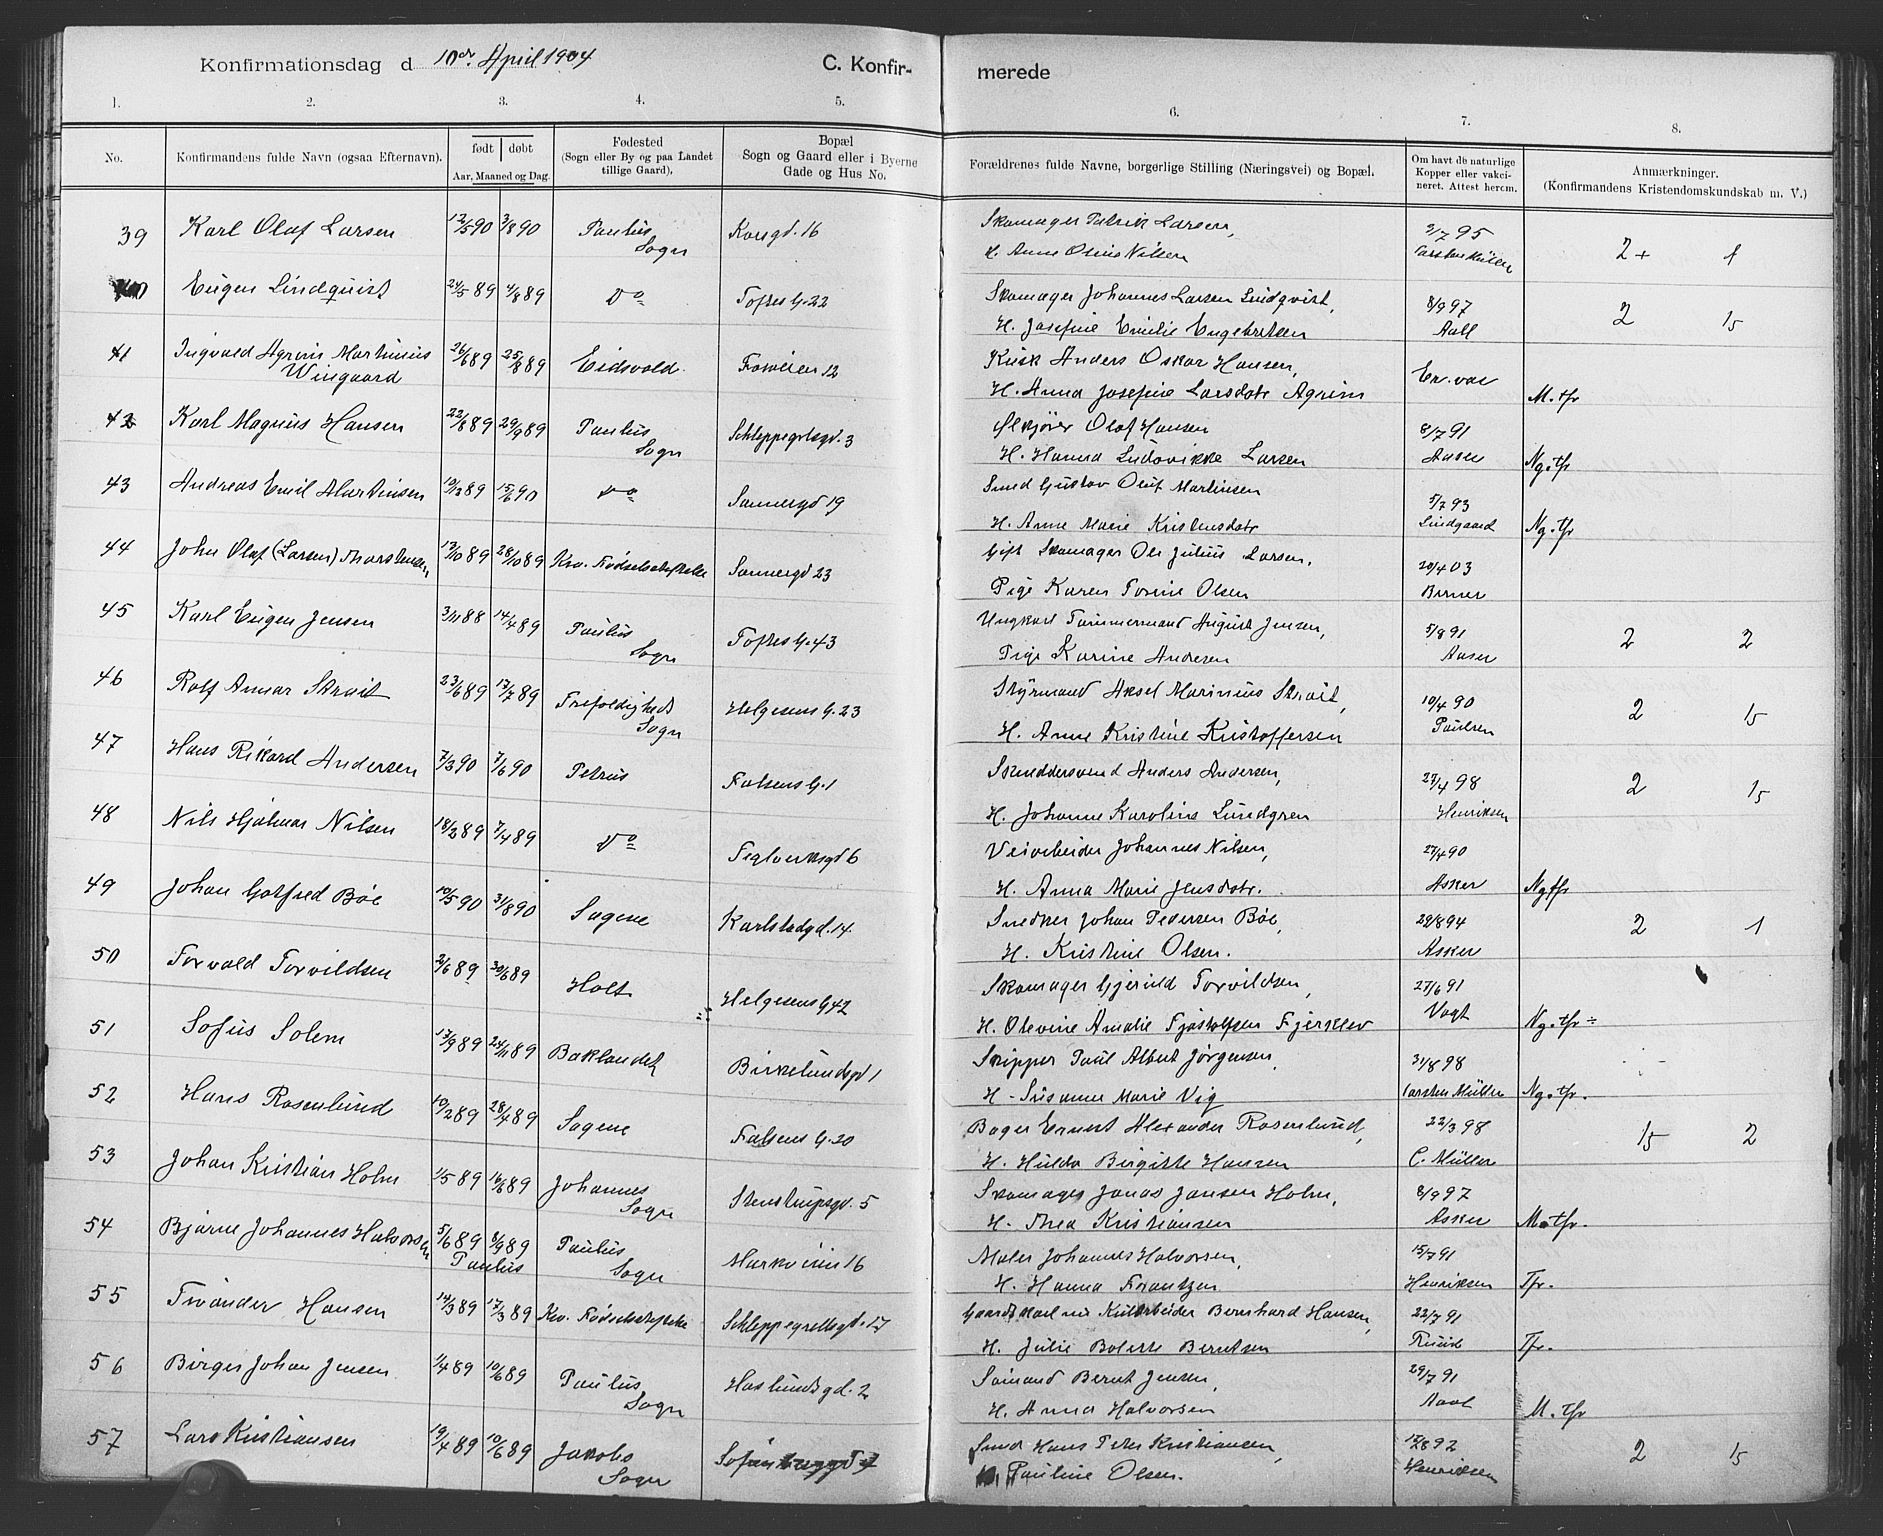 Konfirmationsdag d 10de April 1904
C. Konfir-
merede
1. 2. 3. 4. 5. 6. 7. 8.
No.
Konfirmandens fulde Navn (ogsaa Efternavn).
født døbt
Aar, Maaned og Dag.
Fødested
(Sogn eller By og paa Landet
tillige Gaard).
Bopæl
Sogn og Gaard eller i Byerne
Gade og Hus No.
Forældrenes fulde Navne, borgerlige Stilling (Næringsvei) og Bopæl.
Om havt de naturlige
Kopper eller vakci-
neret. Attest herom.
Anmærkninger.
(Konfirmandens Kristendomskundskab m. V.)
39 Karl Olaf Larsen 12/5 90 3/8 90 Paulus Sogn Kongd. 16 Skomager Patrik Larsen, 2/7 95 2+ 1
H. Anne Oline Nilsen Carsten Müller
40 Eugen Lindquist 24/5 89 4/8 89 Do Toftes G. 22 Skomager Johannes Larsen Lindqvist, 8/9 97 2 15
H. Josefine Emilie Engebretsen Aall
41 Ingvald Agrim Martinius 26/6 89 25/8 89 Eidsvold Fossveien 12 Kusk Anders Oskar Hansen, Er. vac
Wingaard H. Anna Josefine Larsdatr Agrim M. tfr
42 Karl Magnus Hansen 22/8 89 29/9 89 Paulus Sogn Schleppegrlsgd. 3 Ølkjører Olaf Hansen 8/7 91
H. Hanna Ludovikke Larsen Aaser Ng. tfr
43 Andreas Emil Martinsen 19/12 89 15/6 90 Do Sannergd 19 Smed Gustav Oluf Martinsen 5/7 93
H. Anne Marie Kristensdatr Lindgaard Ng. tfr
44 John Olaf (Larsen) Thorstensen 13/10 89 28/10 89 Krv. Fødselsstiftelse Sannergd 23 Gift Skomager Ole Julius Larsen, 20/4 03
Pige Karen Torine Olsen Berner
45 Karl Eugen Jensen 3/11 88 14/4 89 Paulus Sogn Toftes G. 43 Ungkarl Tømmermand August Jensen, 5/8 91 2 2
Pige Karine Andresen Aaser
46 Rolf Annar Strøit 23/6 89 17/7 89 Trefoldigheds Sogn Helgesens G. 23 Styrmand Aksel Marinius Strøit, 10/4 90 2 15
H. Anne Kristine Kristoffersen Paulsen
47 Hans Rikard Andersen 7/3 90 7/6 90 Petrus Falsens G. 1 Skreddersvend Anders Andersen, 27/4 98 2 15
H. Johanne Karoline Lundgren Henriksen
48 Nils Hjalmar Nilsen 18/2 89 7/4 89 Do Teglverksgd 6 Veiarbeider Johannes Nilsen, 27/4 90
H. Anna Marie Jensdatr. Asker Ng tfr
49 Johan Gotfred Bøe 10/5 90 31/8 90 Sagene Karlstadgd. 14 Snedker Johan Pedersen Bøe, 29/8 94 2 1
H. Kristine Olsen. Asker
50 Torvald Torvildsen 2/6 89 30/6 89 Holt Helgesens G 42 Skomager Gjeruld Torvildsen, 27/6 91
H. Olevine Amalie Tjøstolfsen Fjerklev Vogt Ng. tfr ÷
51 Sofus Solem 13/9 89 24/11 89 Baklandet Birkelundsgd 1 Skipper Paul Albert Jørgensen, 31/8 98
H. Susanne Marie Vig Carsten Müller Ng. tfr.
52 Hans Rosenlund 10/2 89 28/4 89 Sagene Falsens G. 20 Bager Ernest Alexander Rosenlund, 22/3 98 15 2
H. Hulda Birgitte Hansen C. Müller
53 Johan Kristian Holm 1/5 89 16/6 89 Johannes Sogn Stenstrupsgd. 5 Skomager Jonas Jansen Holm, 8/9 97
H. Thea Kristiansen Asker M. tfr.
54 Bjarne Johannes Halvorsen 5/6 89 8/9 89 Paulus Sogn Markveien 16 Maler Johannes Halvorsen, 15/7 91
Paulus H. Hanna Frantzen Henriksen Tfr.
55 Tvander Hansen 14/3 89 17/3 89 Krv. Fødselsstiftelse Schleppegrellsgd. 17 Gaardskarl nu Kularbeider Bernhard Hansen, 22/7 91
H. Julie Bolette Berntsen Ruud Tfr.
56 Birger Johan Jensen 1/4 89 10/6 89 Paulus Sogn Haslundsgd. 2 Sømand Bernt Jensen, 29/7 91
H. Anna Halvorsen Aavol M. tfr
57 Lars Kristiansen 19/4 89 10/6 89 Jakobs Sogn Smed Hans Peter Kristiansen, 12/8 92 2 15
Pauline Olsen. Henriksen